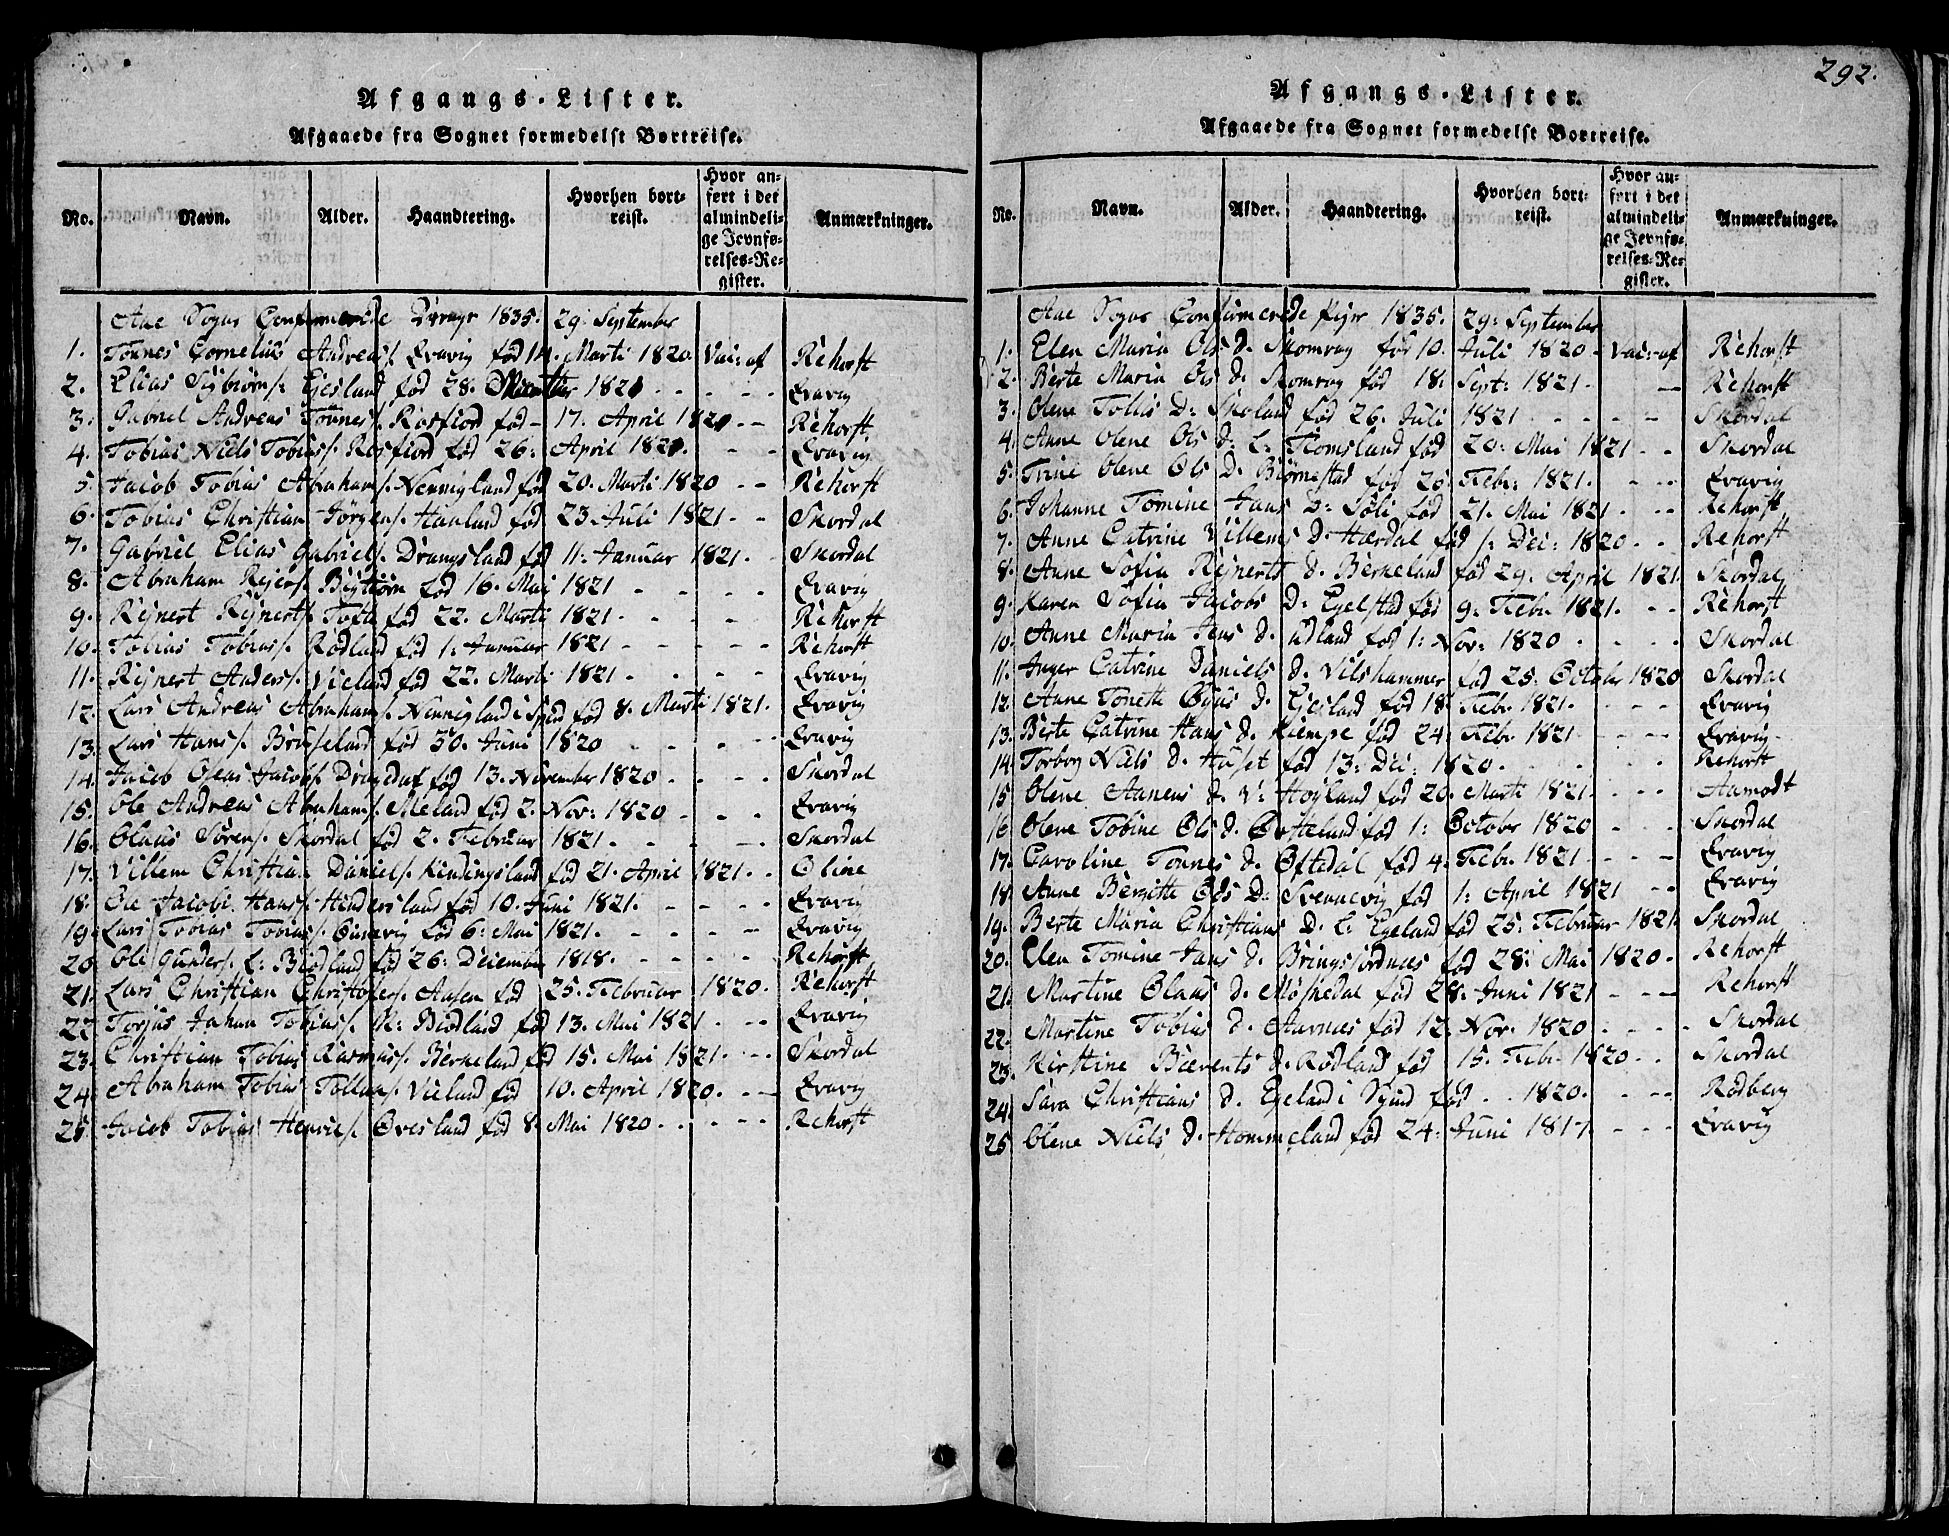 Afgangs-Lister.
Afgaaede fra Sognet formedelst Bortreise.
No. Navn. Alder. Haandtering. Hvorhen bort-reist. Hvor an-ført i det almindeli-ge Jevnfø-relses-Re-gister. Anmærkninger.
Aae Sogns Confirmerede Drenge 1835. 29. September
1. Tønnes Cornelius Andreas/. Qvavig fød 14. Marti 1820. Vac: af Rehorst
2. Elias Sÿbiørn/. Ejesland fød 28. 1821 - - - - - Qvavig
3. Gabriel Andreas Tønnes/. Rosfiord fød - 17. April 1820 - - Rehorst
4. Tobias Niels Tobias/. Rosfiord fød 26: April 1821. - - Qvavig
5. Jacob Tobias Abraham/. Nennigland fød 20. Marti 1820 - - Rehorst
6. Tobias Christian Jørgen/. Hauland fød 23. Juli 1821. - - Skordal
7. Gabriel Elias Gabriel/. Drangsland fød 11. Januar 1821. - Skordal
8. Abraham Rejer/. fød 16. Mai 1821 - - - - Qvavig
9. Rejnert Rejnert/. Tofte fød 22. Marti 1821. - - - - Rehorst
10. Tobias Tobias/. Rødland fød 1. Januar 1821 - - - - - Rehorst
11. Rejnert Anders/. Vieland fød 22. Marti 1821 - - - - Qvavig
12. Lars Andreas Abraham/. Nennigland i Spind fød 8. Marti 1821. Qvavig
13. Lars Hans/. Bruseland fød 30. Juni 1820 - - - - - Qvavig
14. Jacob Oseas Jacob/. fød 13. November 1820. - - - Skordal
15. Ole Andreas Abraham/. Meland fød 2. Nov: 1820 - - - Qvavig
16. Olaus Søren/. Skordal fød 2. Februar 1821. - - - - Skordal
17. Villem Christian Daniel/. Kindingsland fød 21. April 1821. - Oline
18. Ole Jacobi Hans/. Hindersland fød 10. Juni 1821. - - - - Qvavig
19. Lars Tobias Tobias/. fød 6. Mai 1821. - - - - Qvavig
20. Ole Gunder/. L: Biødland fød 26: December 1818. - - - - Rehorst
21. Lars Christian Christofer/. Aasen fød 25. Februar 1820. Rehorst
22. Torjus Johan Tobias/. K: Biødland fød 13. Mai 1821. - - Qvavig
23. Christian Tobias Rasmus/. Berneland fød 15. Mai 1821. - - Skordal
24. Abraham Tobias Tollau/. Vieland fød 10. April 1820. - - Qvavig
25. Jacob Tobias Henric/. Øvesland fød 8. Mai 1820. - - - - Rehorst
292.
Afgangs-Lister.
Afgaaede fra Sognet formedelst Bortreise.
No. Navn. Alder. Haandtering. Hvorhen bort-reist. Hvor an-ført i det almindeli-ge Jevnfø-relses-Re-gister. Anmærkninger.
Aae Sogns Confirmerede Piger 1835. 29: September
1. Elen Maria Ols D. Skomrag fød 10. Juli 1820 - Vac: af Rehorst
2. Berte Maria Ols D. Skomrag fød 18. Sept: 1821. - Rehorst
3. Olene Tobias D: Skoland fød 26. Juli 1821 - - - - Skordal
4. Anne Olene Ols D. L: Tomsland fød 20: Mai 1821 - - Skordal
5. Trine Olene Ols D. Biørnestad fød 26. Febr: 1821. - - - Qvavig
6. Johanne Tomine Jans D: Søli fød 21. Mai 1821. - - Rehorst
7. Anne Catrine Villems D. Hærdal fød /. Dec: 1820. - - Rehorst
8. Anne Sofia Rejnerts D. Berneland fød 29. April 1821. Skordal
9. Karen Sofia Jacobs D: Egelstad fød 9. Febr. 1821. - - Rehorst
10. Anne Maria Jens D. Udland fød 1: Nov: 1820 - - - - Skordal
11. Inger Catrine Daniels D. Vilshammer fød 25: October 1820 Skordal
12. Anne Tonette D. Ejesland fød 18. Febr 1821. - - - Qvavig
13. Berte Catrine Hans D. Kiempe fød 24. Febr 1821 - - - Qvavig
14. Torbor Niels D. Huset fød 13: Dec: 1820. - - - - Rehorst
15. Olene Aanens D. V: Høyland fød 20. Marti 1821. - - - Aamodt
16. Olene Tobine Ols D. Østeland fød 1: October 1820 - - Skordal
17. Caroline Tønnes D. Øftedal fød 4. Febr. 1821 - - - Qvavig
18. Anne Bergitte Ols D: Svennevig fød 1: April 1821 - - Qvavig
19. Berte Maria Christians D. L: Egeland fød 25: Februar 1821. Skordal
20. Elen Tomine Jans D. Bringsiordnees fød 28. Mai 1820. Rehorst
21. Martine Olaus D. Møskedal fød 28. Juni 1821 - - - Rehorst
22. Martine Tobias D. Aarnes fød 12. Nov. 1820 - - - - Skordal
23. Kirstine Bærents D. Rødland fød 15. Febr 1820 - - Skordal
24. Sara Christians D. Egeland i Spind fød - - 1820. - - - Rødberg
25. Olene Niels D. Hommeland fød 24. Juni 1817. - - - Qvavig